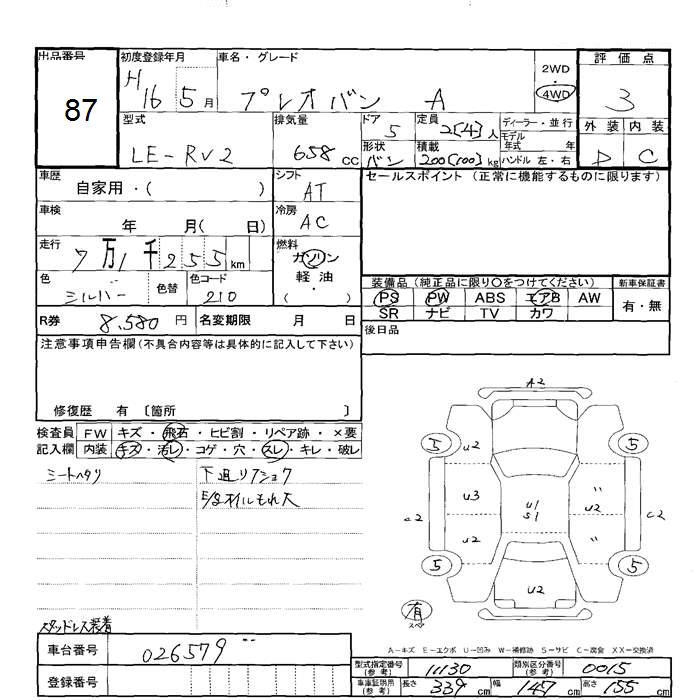 出品番号 初度登録年月 車名・グレード 2WD 評価点
87 H16 5月 プレオバン A 4WD 3
型式 排気量 ドア 定員 ディーラー・並行 外装 内装
LE-RV2 658 cc 5 2[4]人 モデル年式 年 D C
形状 バン 積載 200[100]kg ハンドル 左・右
車歴 自家用・( ) シフト AT セールスポイント (正常に機能するものに限ります)
車検 年 月( 日) 冷房 AC
走行 7万1千255km 燃料 ガソリン
色 シルバー 色替 色コード 210 軽油 ( )
装備品 (純正品に限り○をつけてください) 新車保証書
PS PW ABS エアB AW 有・無
SR ナビ TV カワ
R券 8,580円 名変期限 月 日 後日品
注意事項申告欄(不具合内容等は具体的に記入して下さい)
修復歴 有 〔箇所 〕
検査員 FW キズ・飛石・ヒビ割・リペア跡・×要
記入欄 内装 キズ・汚レ・コゲ・穴・スレ・キレ・破レ
シートヘタリ 下廻りフショク
E/Gオイルもれ大
A2
5 U2 5
U3 U1 S1 〃 U2
C2 C2
U2 〃
5 5
U2
有
スペ
スタッドレス装着
A-キズ E-エクボ U-凹み W-補修跡 S-サビ C-腐食 XX-交換済
車台番号 026579
登録番号
型式指定番号(参考) 11130 類別区分番号(参考) 0015
車庫証明用(参考) 長さ 339cm 幅 147cm 高さ 155cm